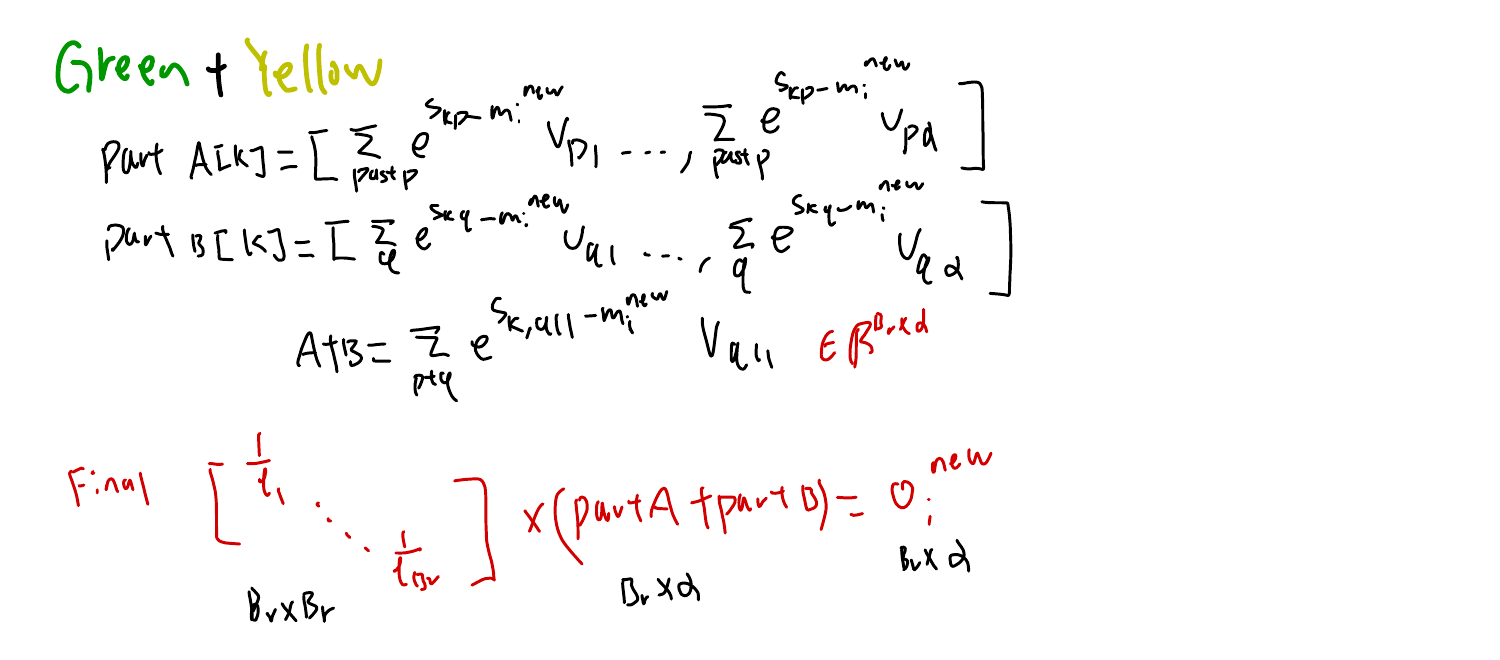 Green + Yellow
Part A[K] = [ Σ_{past p} e^{S_{kp} - m_i^{new}} V_{p1} ..., Σ_{past p} e^{S_{kp} - m_i^{new}} V_{pd} ]
Part B[K] = [ Σ_q e^{S_{kq} - m_i^{new}} V_{q1} ..., Σ_q e^{S_{kq} - m_i^{new}} V_{qd} ]
A+B = Σ_{p+q} e^{S_{k,all} - m_i^{new}} V_{all} ∈ ℝ^{Br×d}
Final [ 1/l_1 ⋱ 1/l_{Br} ] × (Part A + part B) = O_i^{new}
Br×Br Br×d Br×d